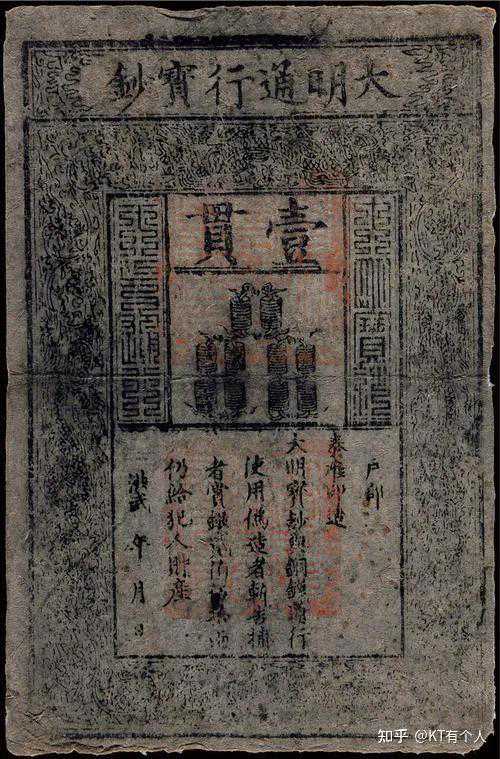 大明通行寶鈔
壹貫
大明寶鈔
天下通行
戶部
奏准印造
大明寶鈔與銅錢通行
使用偽造者斬告捕
者賞銀兩
仍給犯人財產
洪武 年 月 日
知乎 @KT有个人